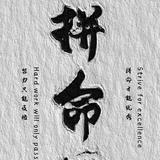 Strive for excellence
拼命才能优秀
拼命
Hard work will only pass
努力只能及格